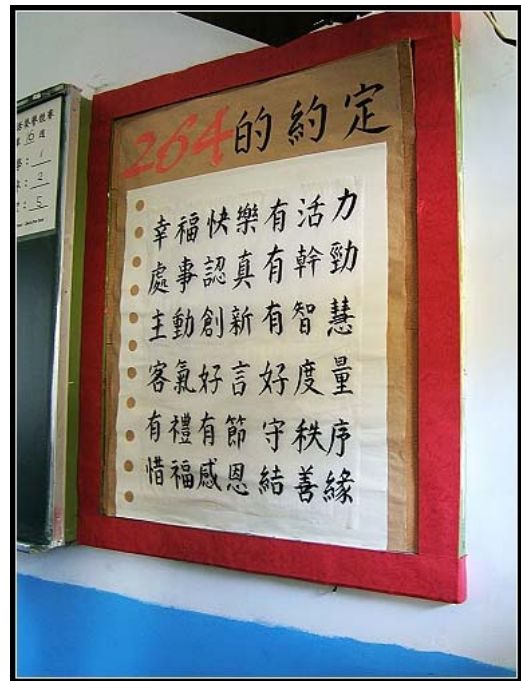 264的約定
幸福快樂有活力
處事認真有幹勁
主動創新有智慧
客氣好言好度量
有禮有節守秩序
惜福感恩結善緣
6
1
2
5